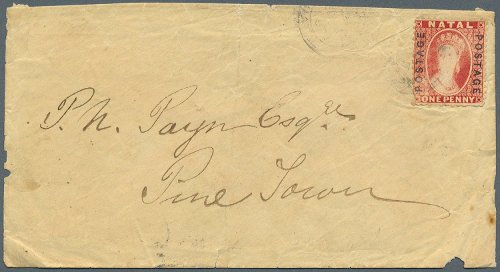 NATAL
POSTAGE
POSTAGE
ONE PENNY
P. N. Payn Esqre
Pine Town